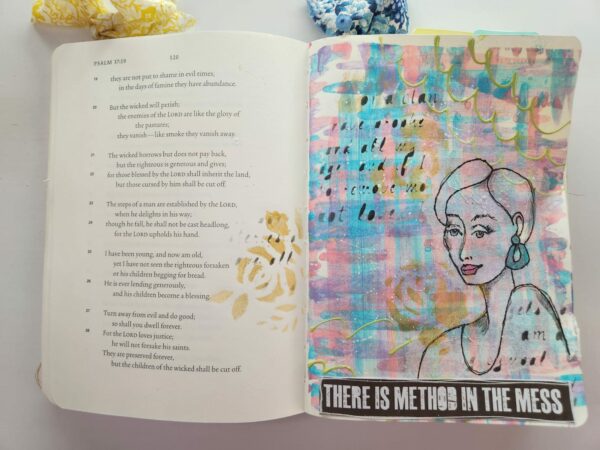 PSALM 37:19
520
19 they are not put to shame in evil times;
in the days of famine they have abundance.
20 But the wicked will perish;
the enemies of the LORD are like the glory of
the pastures;
they vanish—like smoke they vanish away.
21 The wicked borrows but does not pay back,
but the righteous is generous and gives;
22 for those blessed by the LORD shall inherit the land,
but those cursed by him shall be cut off.
23 The steps of a man are established by the LORD,
when he delights in his way;
24 though he fall, he shall not be cast headlong,
for the LORD upholds his hand.
25 I have been young, and now am old,
yet I have not seen the righteous forsaken
or his children begging for bread.
26 He is ever lending generously,
and his children become a blessing.
27 Turn away from evil and do good;
so shall you dwell forever.
28 For the LORD loves justice;
he will not forsake his saints.
They are preserved forever,
but the children of the wicked shall be cut off.
and all my
am a
THERE IS METHOD IN THE MESS